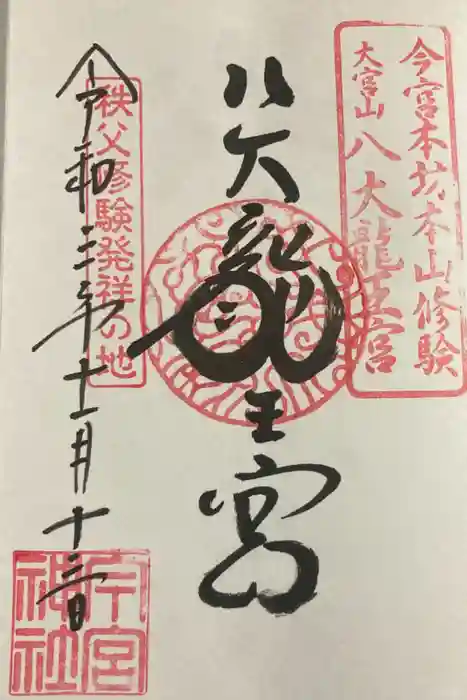 今宮本坊本山修験
大宮山八大龍王宮
八大龍王宮
秩父修験発祥の地
令和三年十一月十三日
今宮
神社